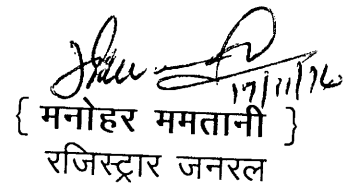 17/11/16
{ मनोहर ममतानी }
रजिस्ट्रार जनरल